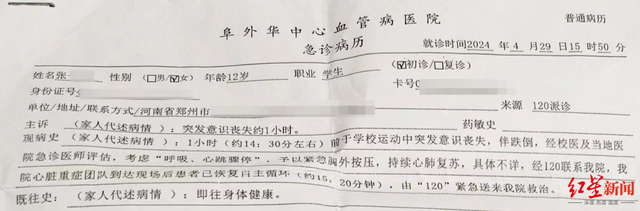 阜外华中心血管病医院
普通病历
急诊病历
就诊时间2024 年 4 月 29日15 时50 分
姓名张 性别 (□男/☑女) 年龄12岁 职业 学生 (☑初诊/□复诊)
身份证号 卡号
单位/地址/联系方式/河南省郑州市 来源 120派诊
主诉 (家人代述病情): 突发意识丧失约1小时。 药敏史
现病史 (家人代述病情): 1小时 (约14: 30分左右) 前于学校运动中突发意识丧失, 伴跌倒, 经校医及当地医
院急诊医师评估, 考虑“呼吸、心跳骤停”, 予以紧急胸外按压, 持续心肺复苏, 具体不详, 经120联系我院, 我
院心脏重症团队到达现场后患者已恢复自主循环 (约15, 20分钟), 由“120”紧急送来我院救治。
既往史: (家人代述病情): 即往身体健康。
红星新闻